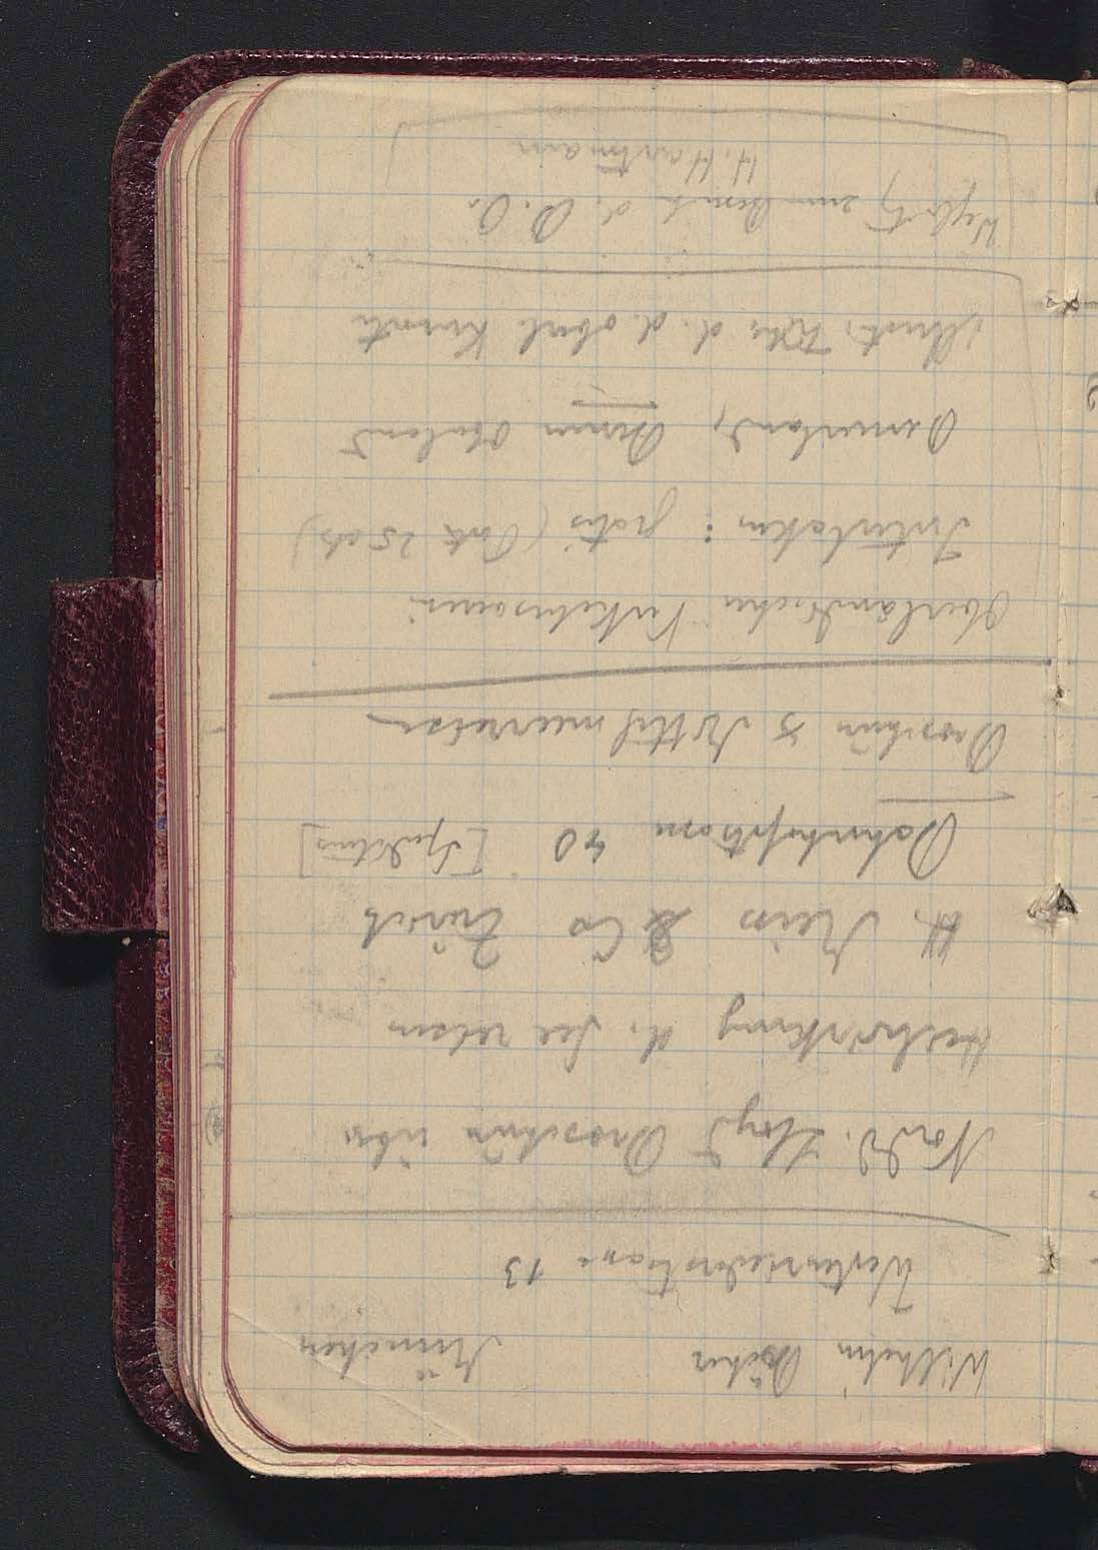 Wilhelm Bücher München
Westenriederstrasse 13
Nordd. Lloyd Broschür über
Heilwirkung d. See reisen
H. Meiss & Co Zürich
Bahnhofstrasse 40
Broschür Mittelmeerreise
Oberländischer Verkehrsverein
Interlaken: gratis (Port. 25 cts)
Bernerland, Berner Oberland
illustr. d. d.
zum d. B. O.
H. Hartmann